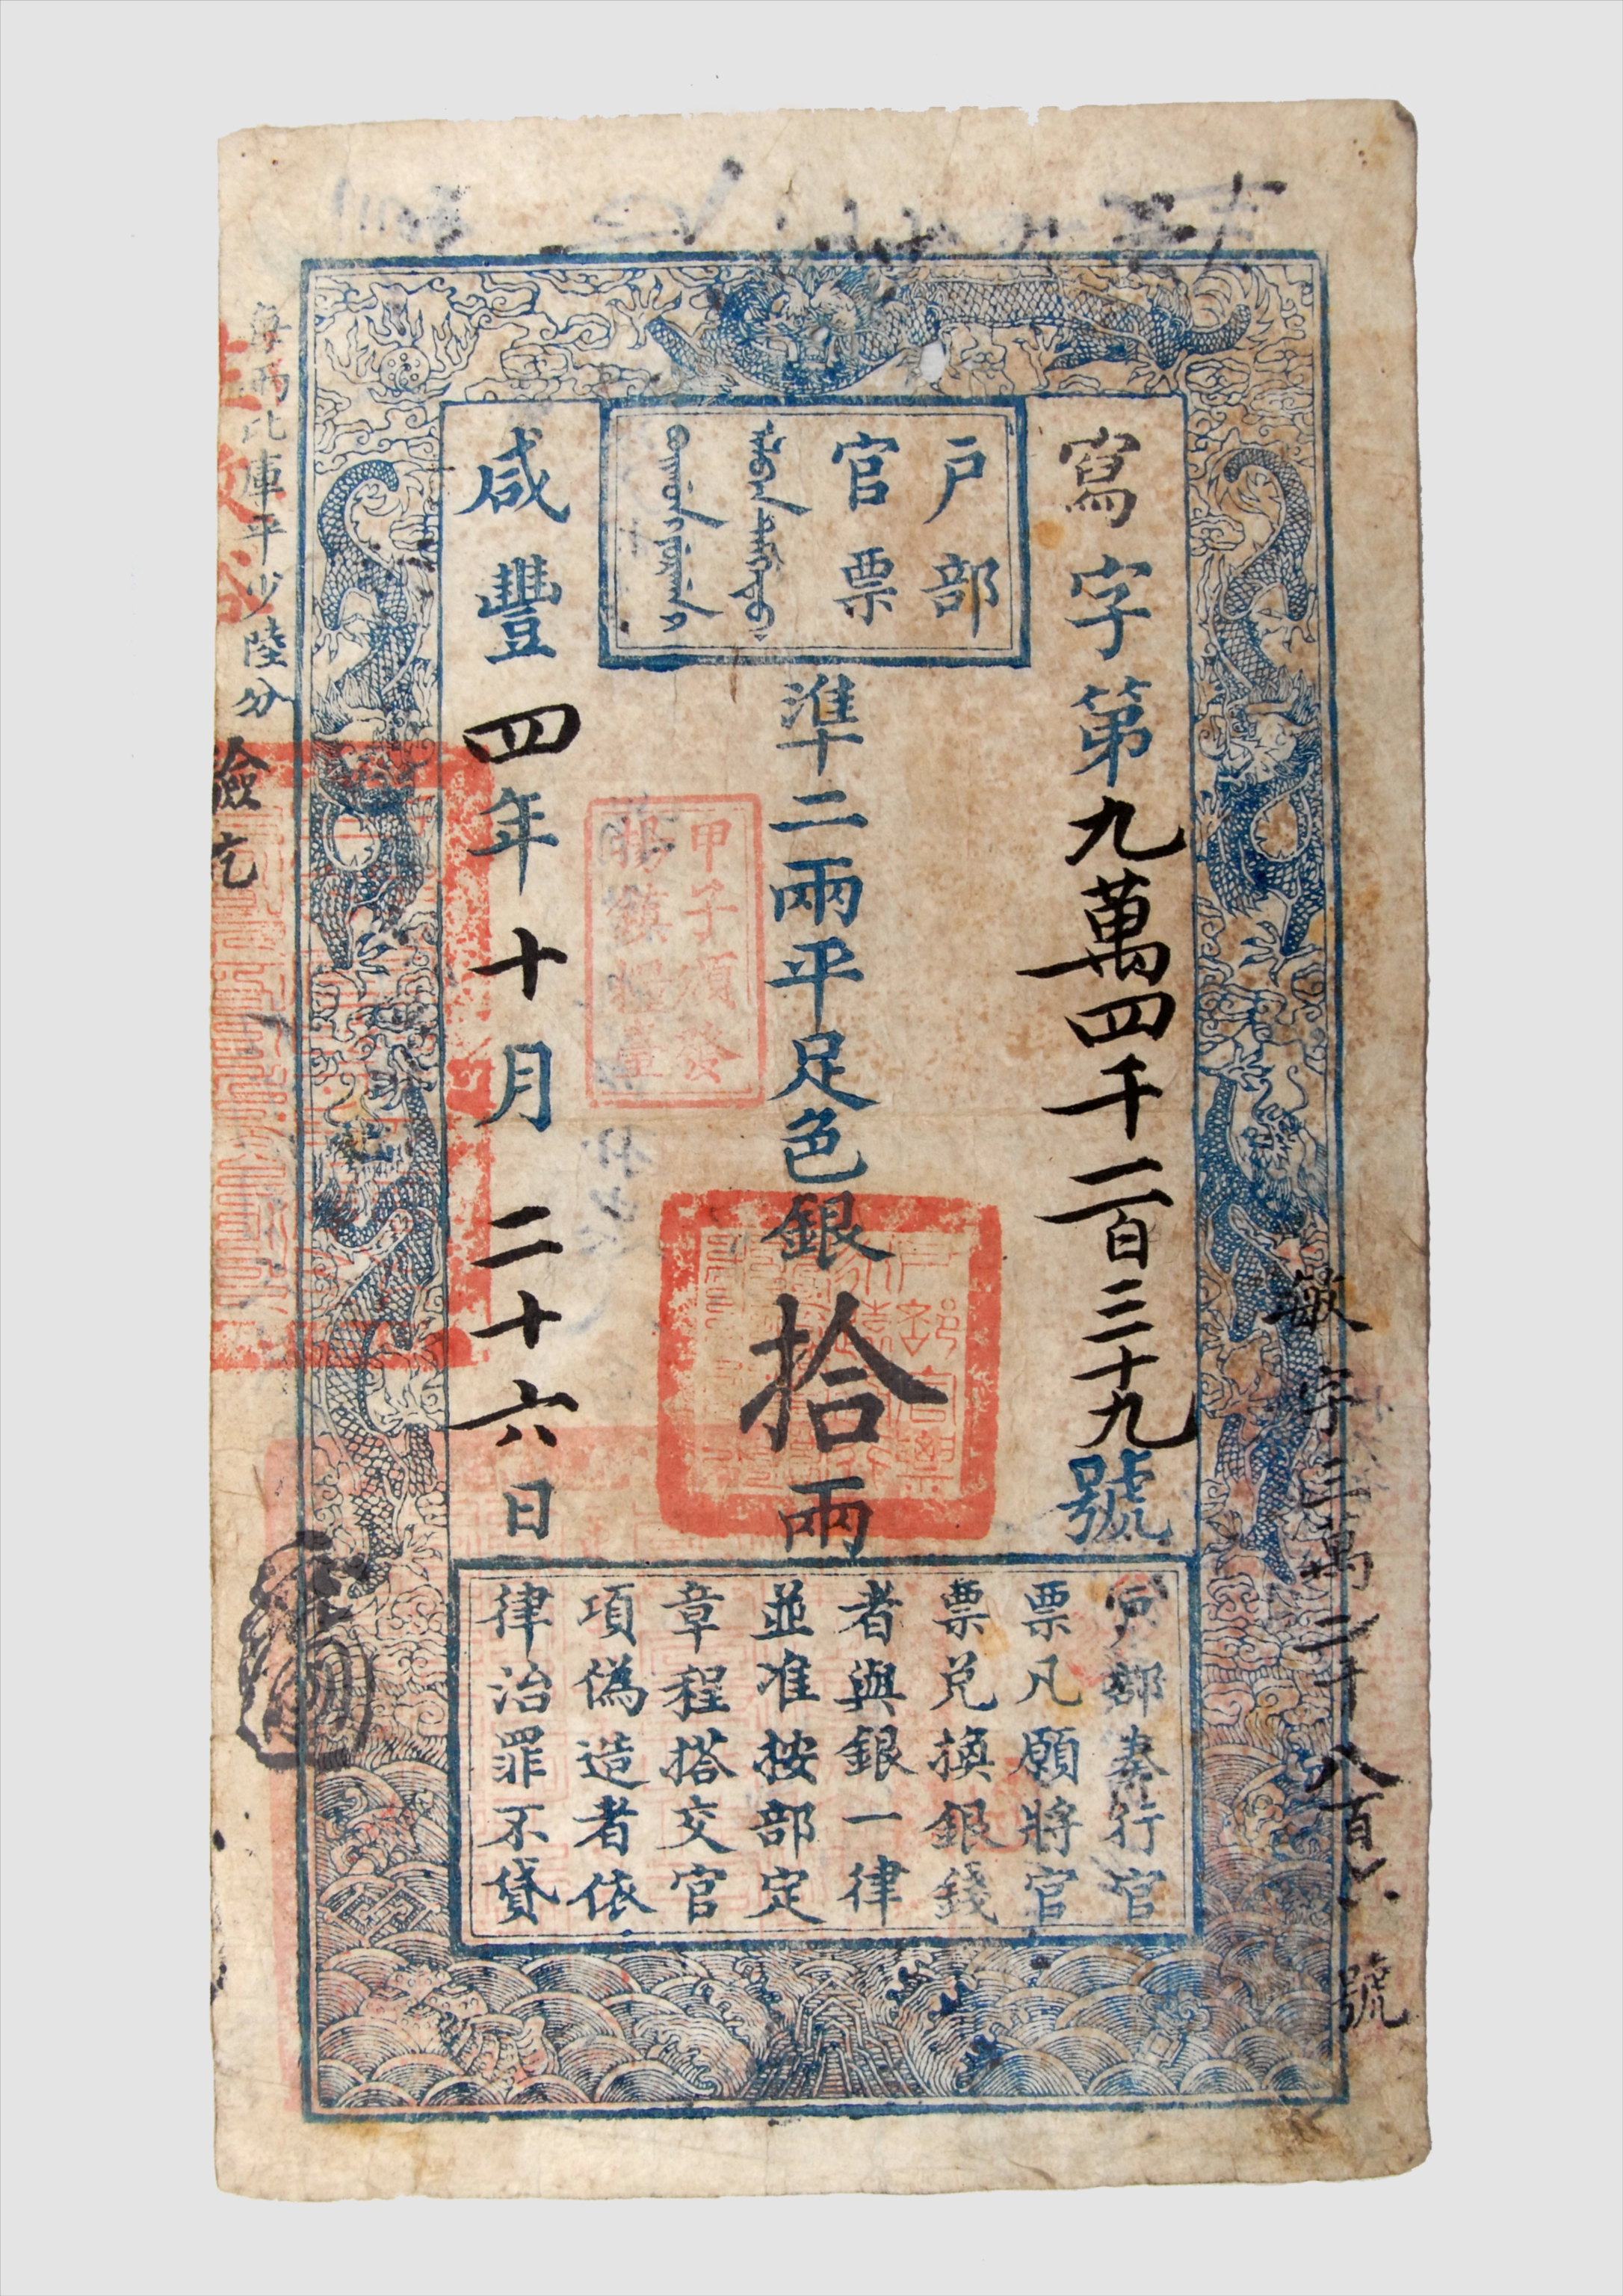 戶部
官票
寫字第九萬四千二百三十九號
準二兩平足色銀拾兩
咸豐四年十月二十六日
戶部奏行官
票凡願將官
票兌換銀錢
者與銀一律
並准按部定
章程搭交官
項偽造者依
律治罪不貸
敏字三萬二千八百六號
每兩比庫平少陸分
驗訖
甲子